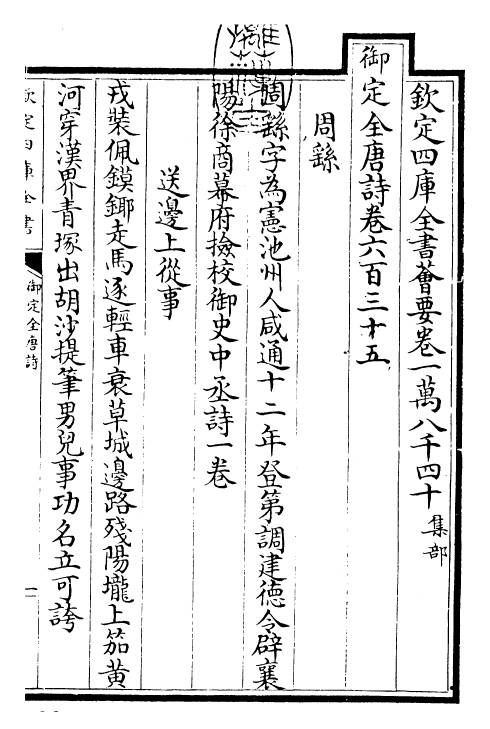 欽定四庫全書薈要卷一萬八千四十集部
御定全唐詩卷六百三十五
周繇
周繇字為憲池州人咸通十二年登第調建德令辟襄
陽徐商幕府檢校御史中丞詩一卷
送邊上從事
戎裝佩鏌鋣走馬逐輕車衰草城邊路殘陽壠上笳黄
河穿漢界青塚出胡沙提筆男兒事功名立可誇
欽定四庫全書
御定全唐詩
一